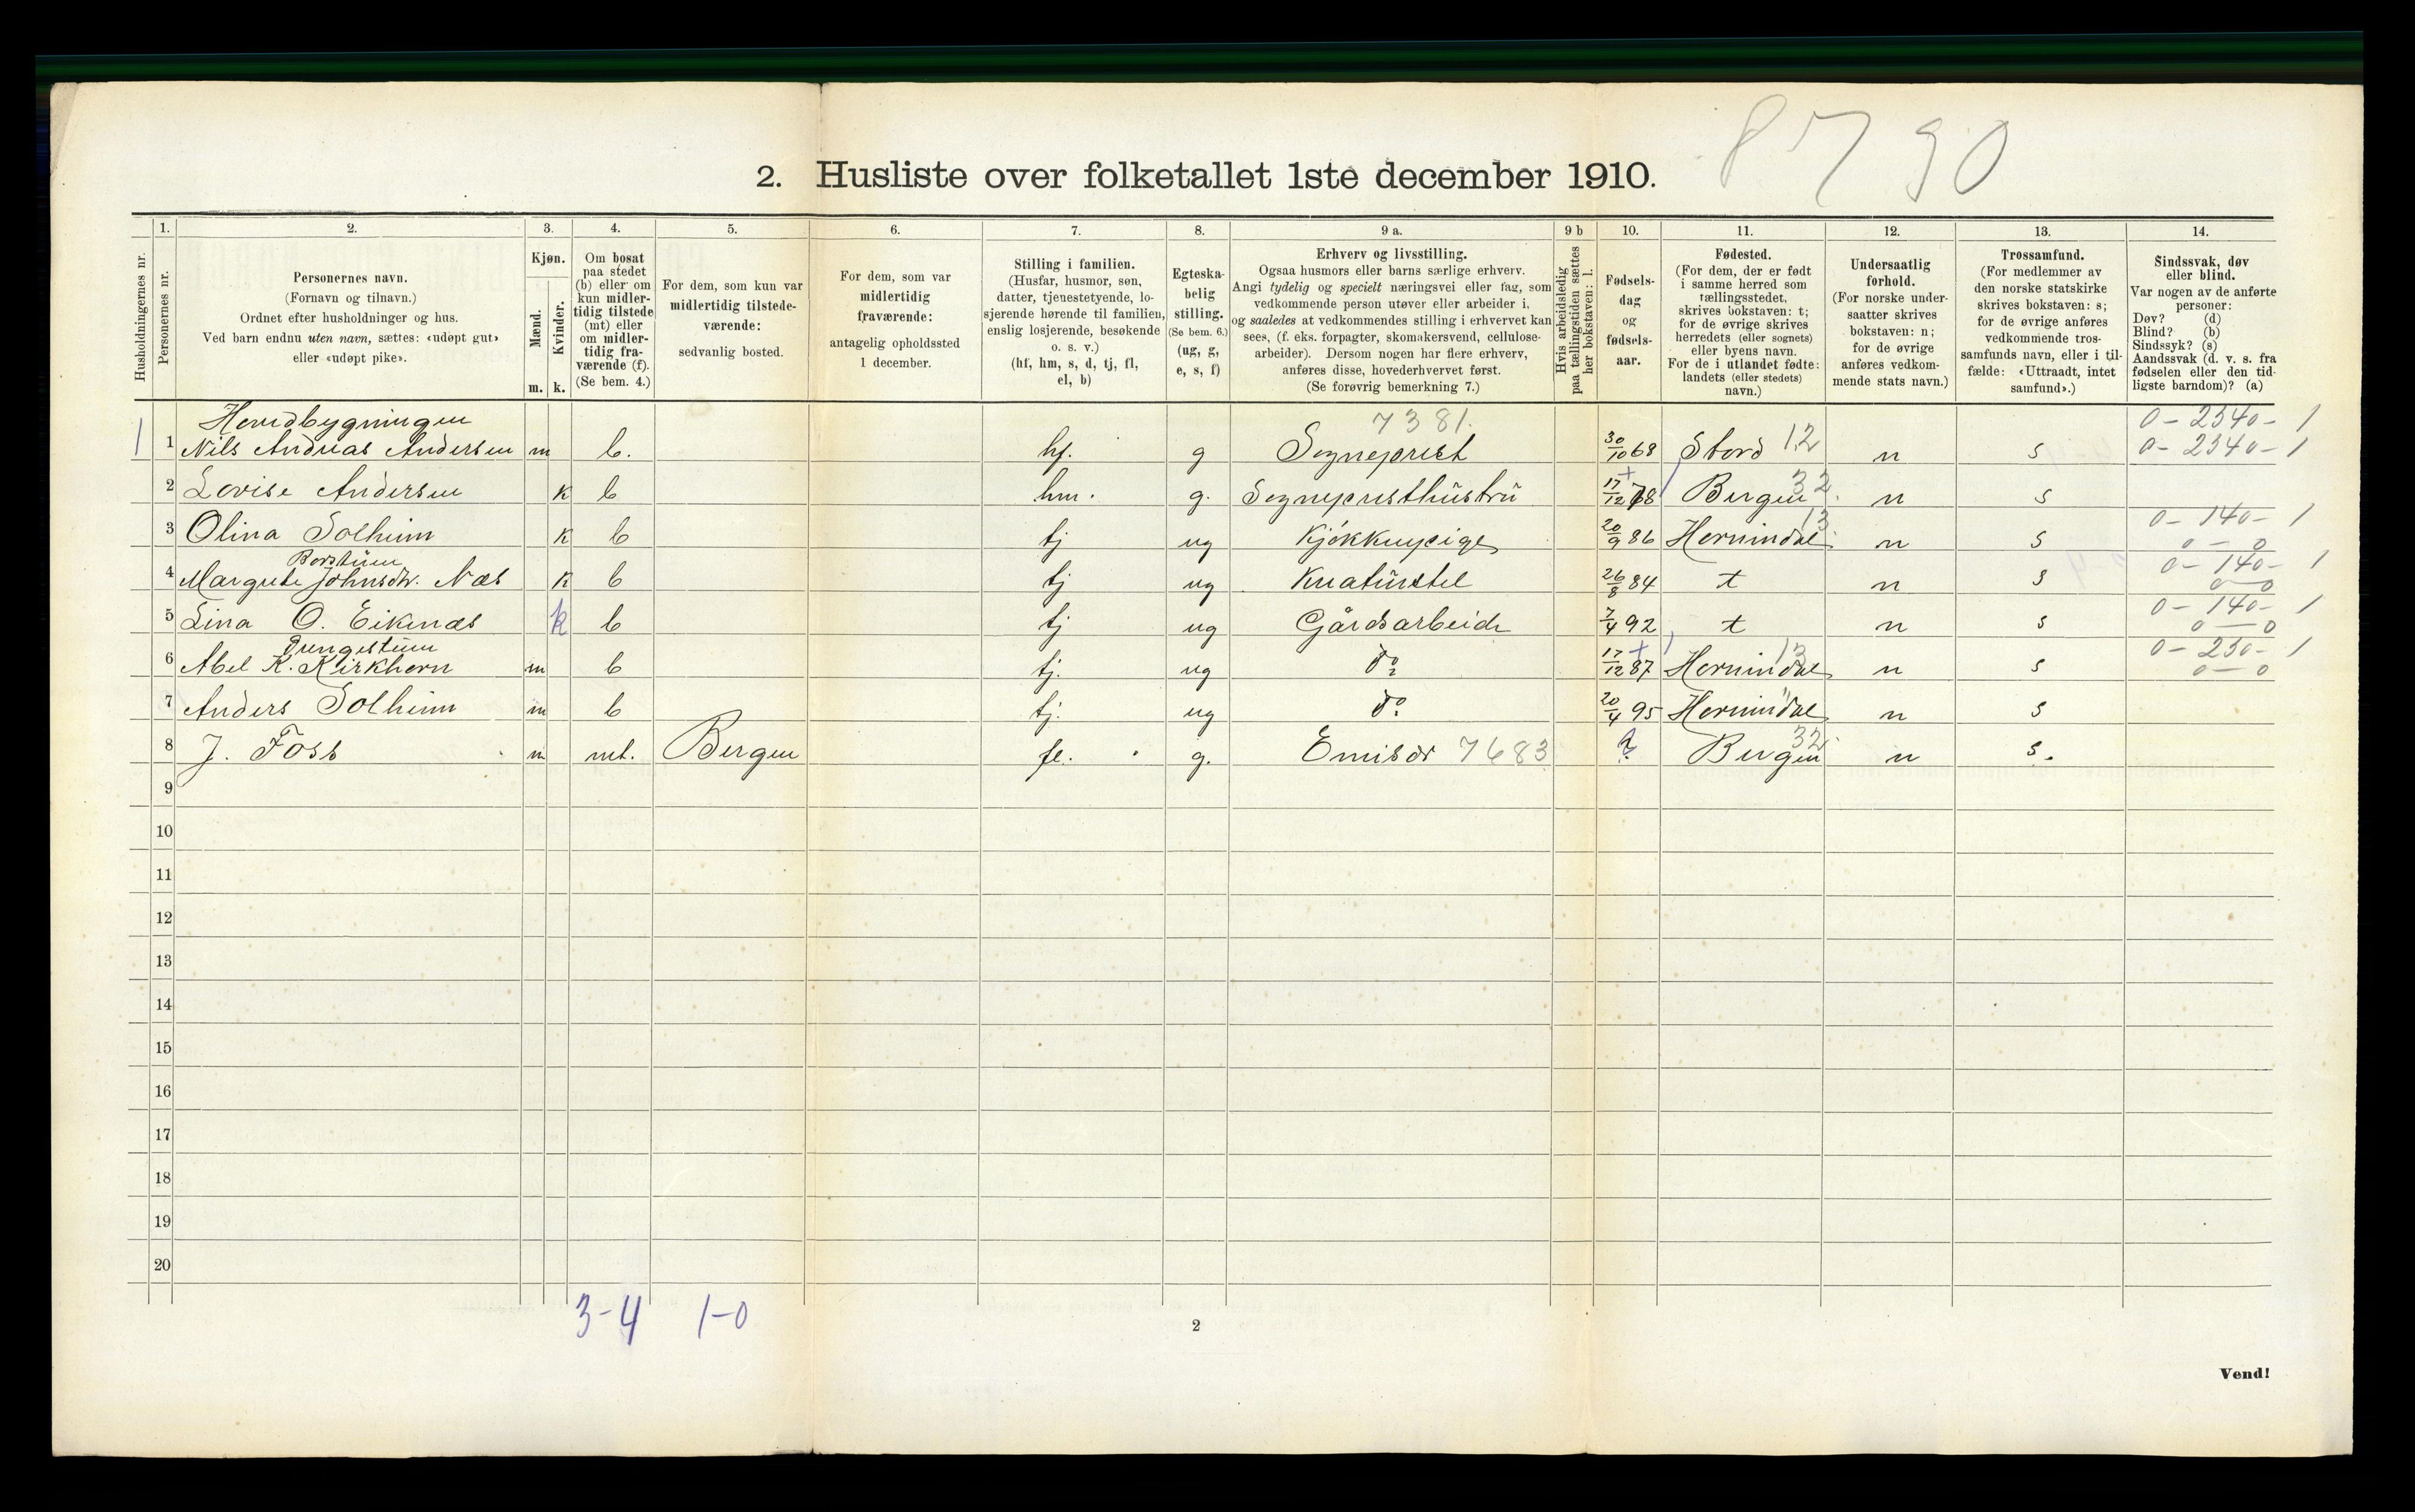 8790
2. Husliste over folketallet 1ste december 1910.
1. 2. 3. 4. 5. 6. 7. 8. 9 a. 9 b 10. 11. 12. 13. 14.
Husholdningernes nr.
Personernes nr.
Personernes navn.
(Fornavn og tilnavn.)
Ordnet efter husholdninger og hus.
Ved barn endnu uten navn, sættes: «udøpt gut»
eller «udøpt pike».
Kjøn.
Mænd.
Kvinder.
m. k.
Om bosat
paa stedet
(b) eller om
kun midler-
tidig tilstede
(mt) eller
om midler-
tidig fra-
værende (f).
(Se bem. 4.)
For dem, som kun var
midlertidig tilstede-
værende:
sedvanlig bosted.
For dem, som var
midlertidig
fraværende:
antagelig opholdssted
1 december.
Stilling i familien.
(Husfar, husmor, søn,
datter, tjenestetyende, lo-
sjerende hørende til familien,
enslig losjerende, besøkende
o. s. v.)
(hf, hm, s, d, tj, fl,
el, b)
Egteska-
belig
stilling.
(Se bem. 6.)
(ug, g,
e, s, f)
Erhverv og livsstilling.
Ogsaa husmors eller barns særlige erhverv.
Angi tydelig og specielt næringsvei eller fag, som
vedkommende person utøver eller arbeider i,
og saaledes at vedkommendes stilling i erhvervet kan
sees, (f. eks. forpagter, skomakersvend, cellulose-
arbeider). Dersom nogen har flere erhverv,
anføres disse, hovederhvervet først.
(Se forøvrig bemerkning 7.)
Hvis arbeidsledig
paa tællingstiden sættes
her bokstaven: l.
Fødsels-
dag
og
fødsels-
aar.
Fødested.
(For dem, der er født
i samme herred som
tællingsstedet,
skrives bokstaven: t;
for de øvrige skrives
herredets (eller sognets)
eller byens navn.
For de i utlandet fødte:
landets (eller stedets)
navn.)
Undersaatlig
forhold.
(For norske under-
saatter skrives
bokstaven: n;
for de øvrige
anføres vedkom-
mende stats navn.)
Trossamfund.
(For medlemmer av
den norske statskirke
skrives bokstaven: s;
for de øvrige anføres
vedkommende tros-
samfunds navn, eller i til-
fælde: «Uttraadt, intet
samfund».)
Sindssvak, døv
eller blind.
Var nogen av de anførte
personer:
Døv? (d)
Blind? (b)
Sindssyk? (s)
Aandssvak (d. v. s. fra
fødselen eller den tid-
ligste barndom)? (a)
Hovedbygningen 7381. 0-2340-1
1 1 Nils Andreas Andersen m b. hf. g Sogneprest 30/10 68 Stord 12 n s 0-2340-1
2 Lovise Andersen k b hm. g. Sognepresthustru 17/12 78 Bergen 32 n s
0-140-1
3 Olina Solheim k b tj ug Kjøkkenpige 20/9 86 Hornindal 13 n s 0-0
Borstuen 0-140-1
4 Margrete Johnsdtr. Næs k b tj ug Kreaturstel 26/8 84 t n s 0-0
0-140-1
5 Lina O. Eiknæs k b tj ug Gårdsarbeide 7/4 92 t n s 0-0
Drengestuen 0-230-1
6 Abel K. Kirkhorn m b tj. ug do 17/12 87 Hornindal 13 n s 0-0
7 Anders Solheim m b tj. ug do 20/4 95 Hornindal " n s
8 J. Foss m mt. Bergen fl. g. Emisær 7683 ? Bergen 32 n s.
9
10
11
12
13
14
15
16
17
18
19
20
3-4 1-0
2
Vend!